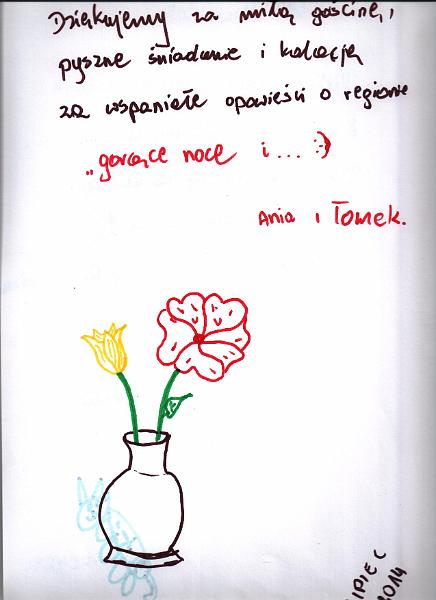 Dziękujemy za miłą gościnę,
pyszne śniadanie i kolację
za wspaniałe opowieści o regionie
„gorące noce i... :)
Ania i Tomek.
LIPIEC
2014